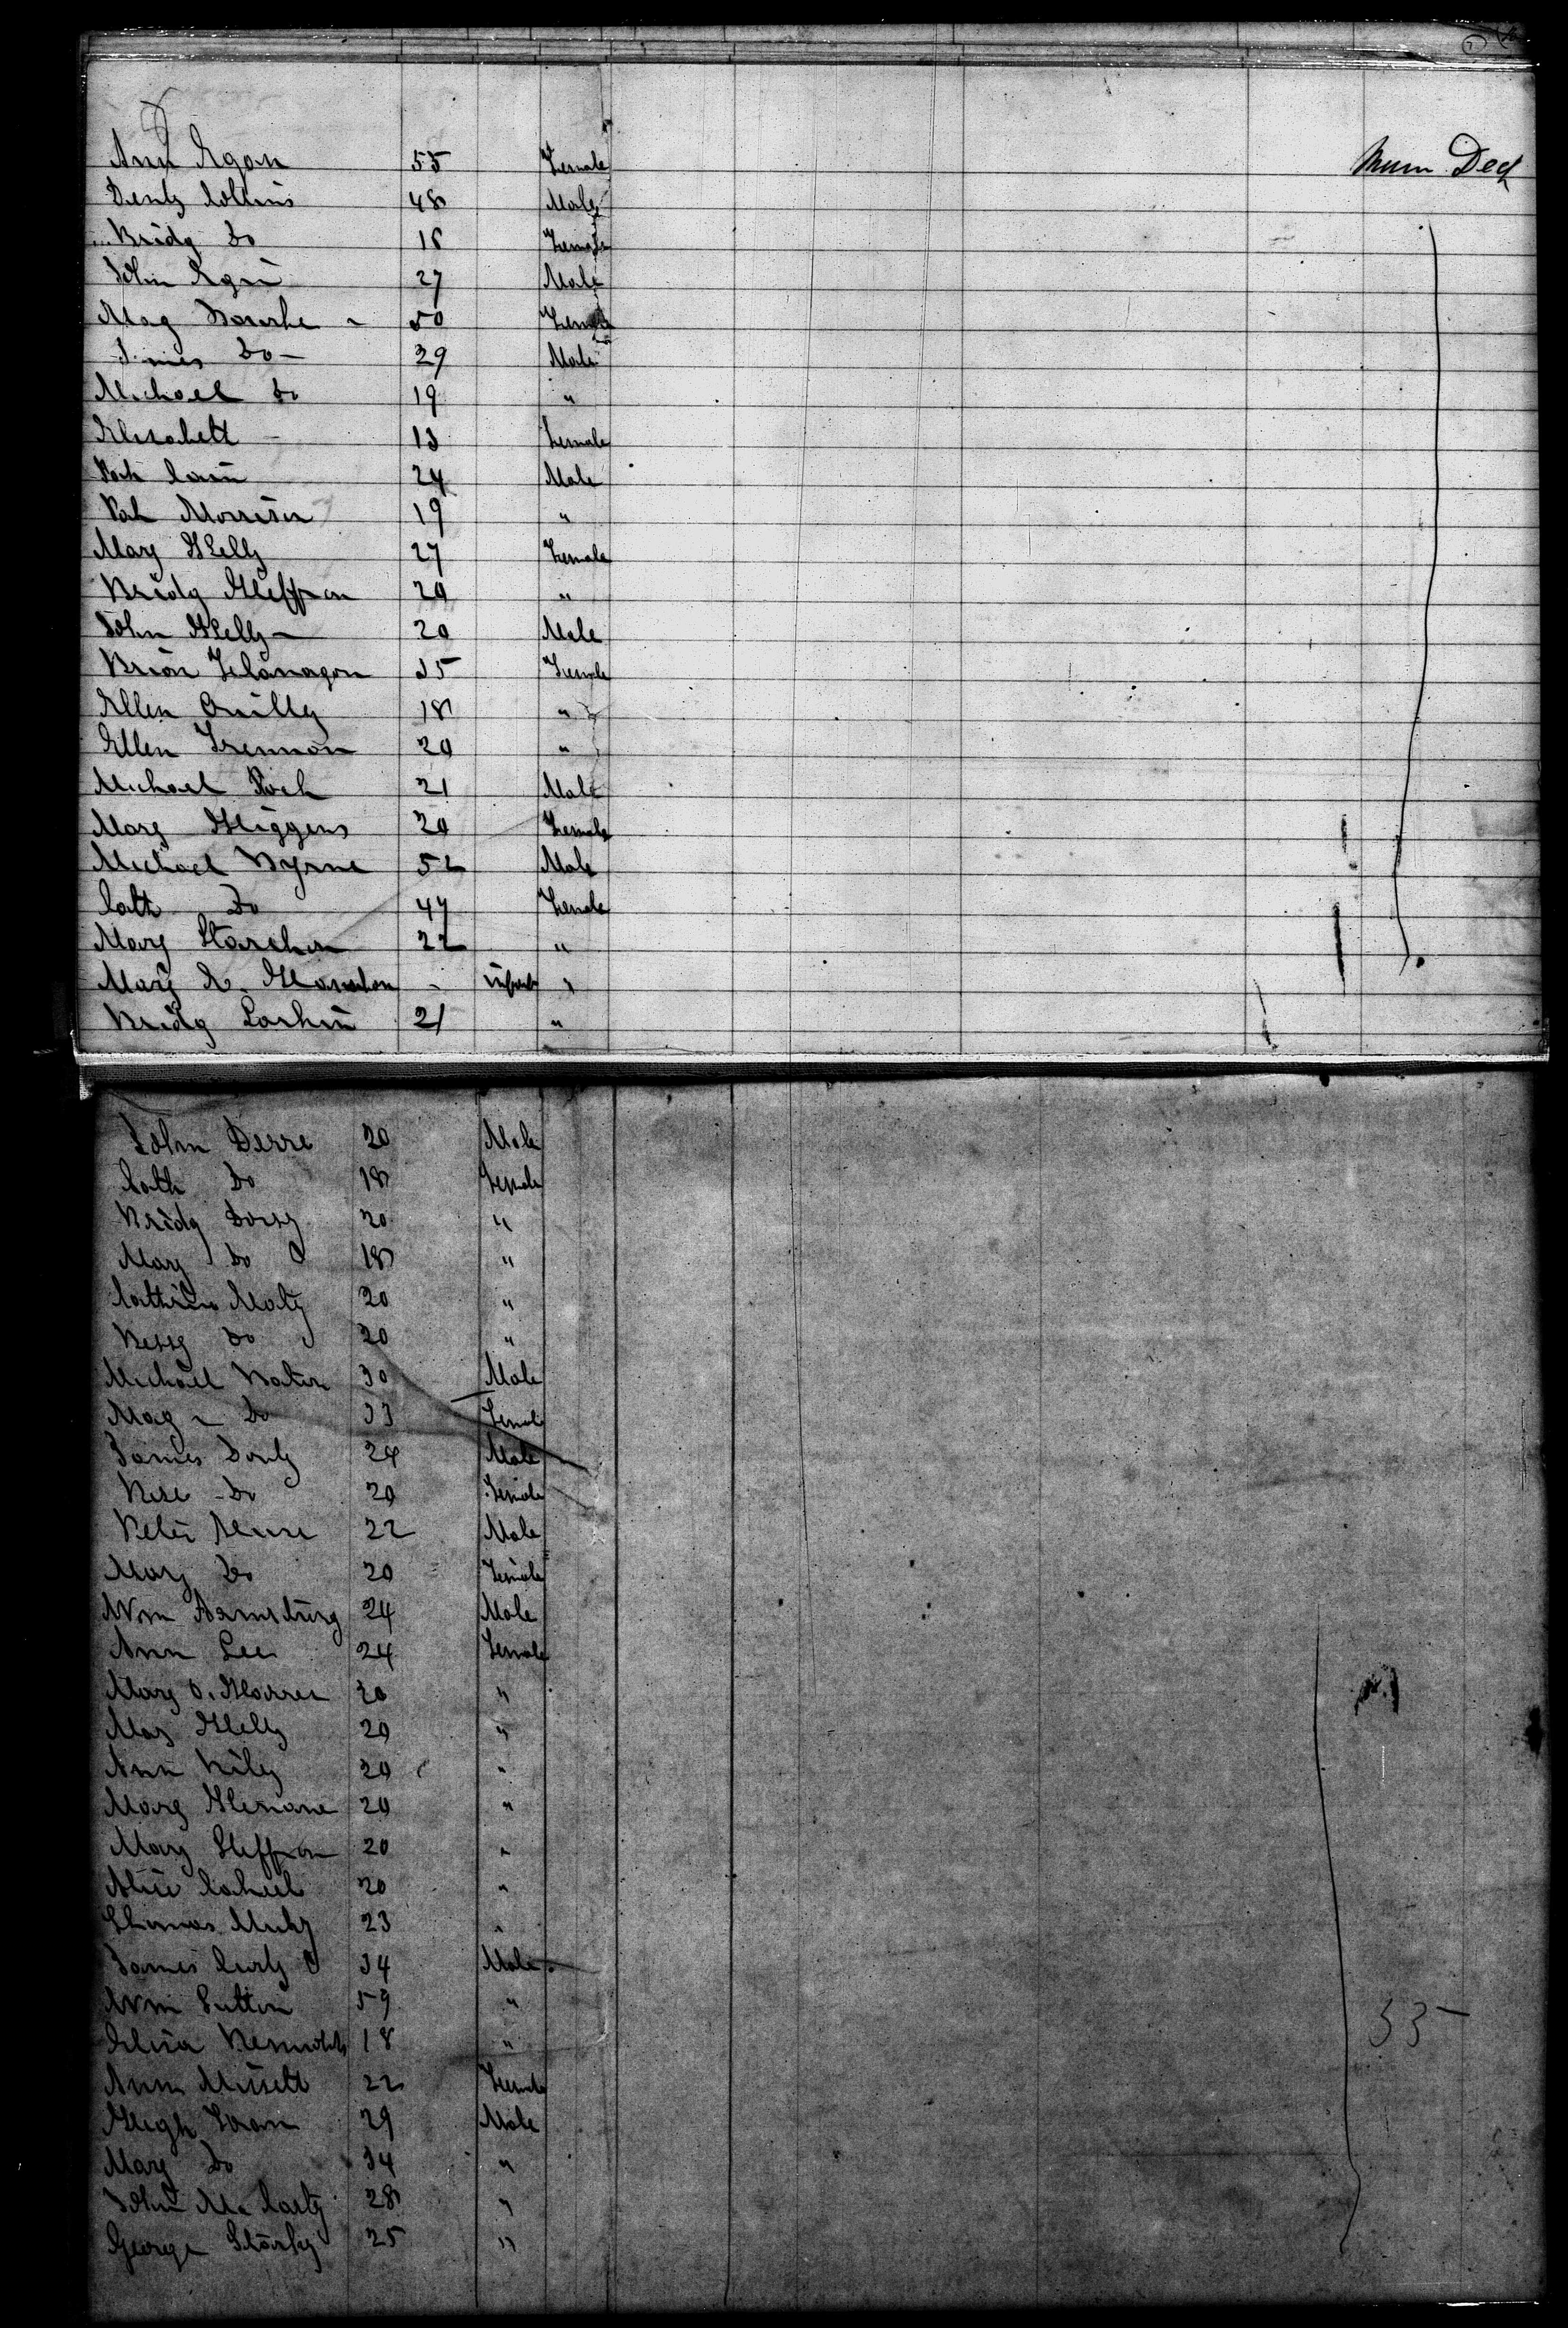 Ann Egan 55 Female Mum Deck
Denty Collins 48 Male
Bridg Do 16 Female
John Egan 27 Male
Mag Bourke 50 Female
James Do 29 Male
Michael Do 19 "
Elisabett 13 Female
Pat Cain 24 Male
Pat Morrison 19 "
Mary Kelly 27 Female
Bridg Heffron 20 "
John Kelly 20 Male
Brian Flanagan 35 Female
Ellen Quilly 18 "
Ellen Brennan 20 "
Michael Roch 21 Male
Mary Higgens 20 Female
Michael Byrne 52 Male
Cath Do 47 Female
Mary 22 "
Mary infant "
Bridg Larkin 21 "
John Derre 20 Male
Cath Do 18 Female
Bridg Dorsy 20 "
Mary Do 18 "
Cathrine Maty 20 "
Betsy Do 20 "
Michael 30 Male
Mag Do 33 Female
James 24 Male
Rose Do 20 Female
Peter 22 Male
Mary Do 20 Female
Wm Armstrong 24 Male
Ann Lee 24 Female
Mary 20 "
May Kelly 20 "
Ann Rily 20 "
Mary 20 "
Mary Heffron 20 "
Alice 20 "
Thomas 23 "
James Curly 34 Male
Wm Sutton 59 " 33
Eliza Reynolds 18 "
Ann Missett 22 Female
Hugh 29 Male
Mary Do 34 "
John Mc Carty 28 "
George 25 "